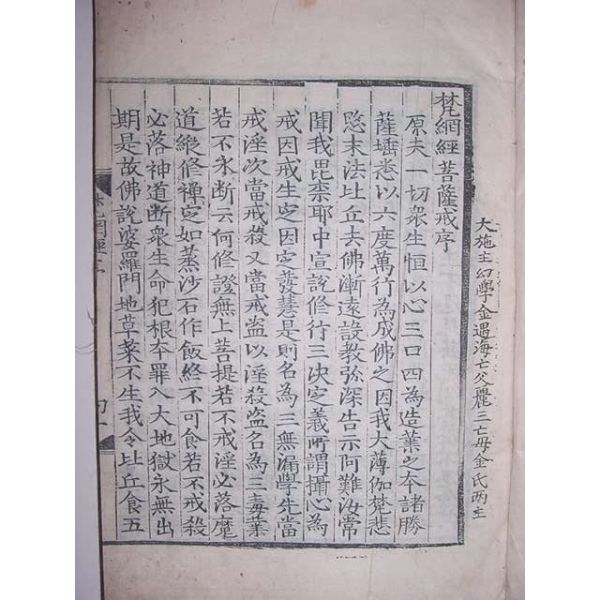 大施主幻學金遇海亡父麗三亡母金氏两主
梵網經菩薩戒序
原夫一切衆生恒以心三口四為造業之夲諸勝
薩埵悉以六度萬行為成佛之因我大薄伽梵悲
愍末法比丘去佛漸遠設教弥深告示阿難汝常
聞我毘柰耶中宣說修行三决㝎義所謂攝心為
戒因戒生㝎因㝎發慧是則名為三無漏學先當
戒淫次當戒殺又當戒盗以淫殺盗名為三毒業
若不永断云何修證無上菩提若不戒淫必落魔
道縱修禪㝎如蒸沙石作飯終不可食若不戒殺
必落神道断衆生命犯根夲罪入大地獄永無出
期是故佛說婆羅門地草菜不生我令比丘食五
梵網經